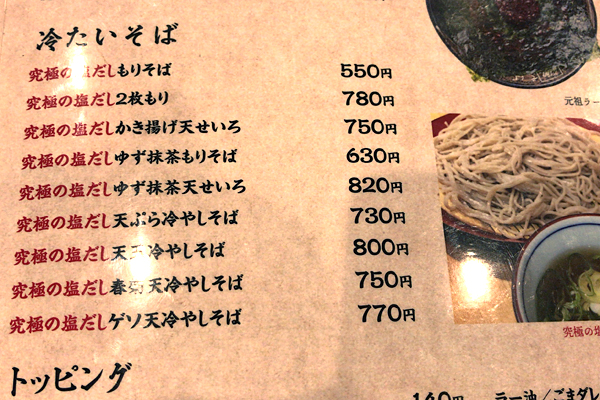 冷たいそば
究極の塩だしもりそば 550円
究極の塩だし2枚もり 780円
究極の塩だしかき揚げ天せいろ 750円
究極の塩だしゆず抹茶もりそば 630円
究極の塩だしゆず抹茶天せいろ 820円
究極の塩だし天ぷら冷やしそば 730円
究極の塩だし天玉冷やしそば 800円
究極の塩だし春菊天冷やしそば 750円
究極の塩だしゲソ天冷やしそば 770円
元祖ラー
究極の塩
トッピング
140円 ラー油/ごまダレ